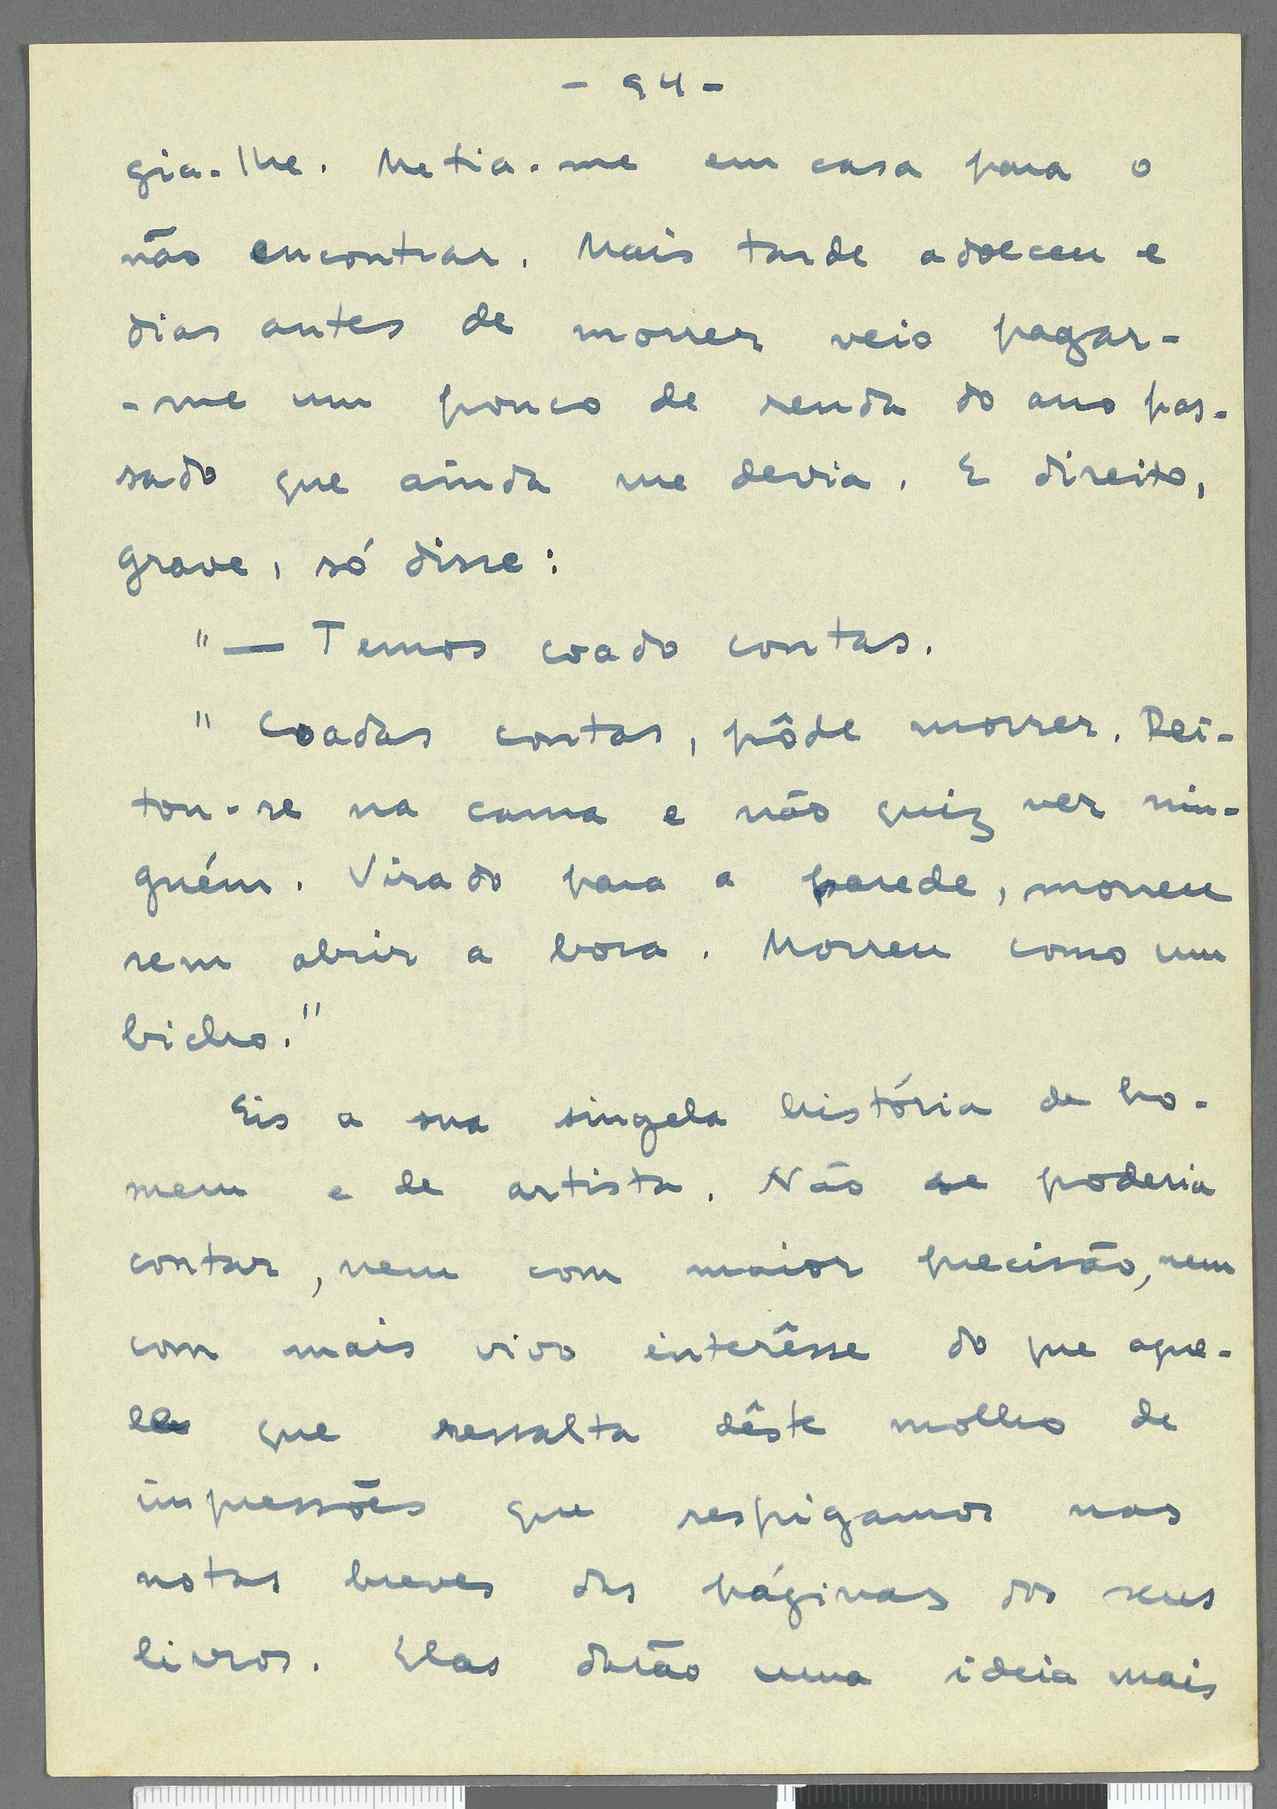 - 94 -
gia-lhe. Metia-me em casa para o
não encontrar. Mais tarde adoeceu e
dias antes de morrer veio pagar-
-me um pouco de renda do ano pas-
sado que ainda me devia. E direito,
grave, só disse:
"— Temos coado contas.
" Coadas contas, pôde morrer. Dei-
tou-se na cama e não quiz ver nin-
guém. Virado para a parede, morreu
sem abrir a boca. Morreu como um
bicho."
Eis a sua singela história de ho-
mem e de artista. Não se poderia
contar, nem com maior precisão, nem
com mais vivo interêsse do que aque-
les que ressalta dêste molho de
impressões que respigamos nas
notas breves das páginas dos seus
livros. Elas darão uma ideia mais